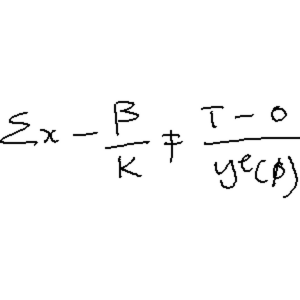 Σx - β/K ≠ (T - 0)/(y^e(φ))